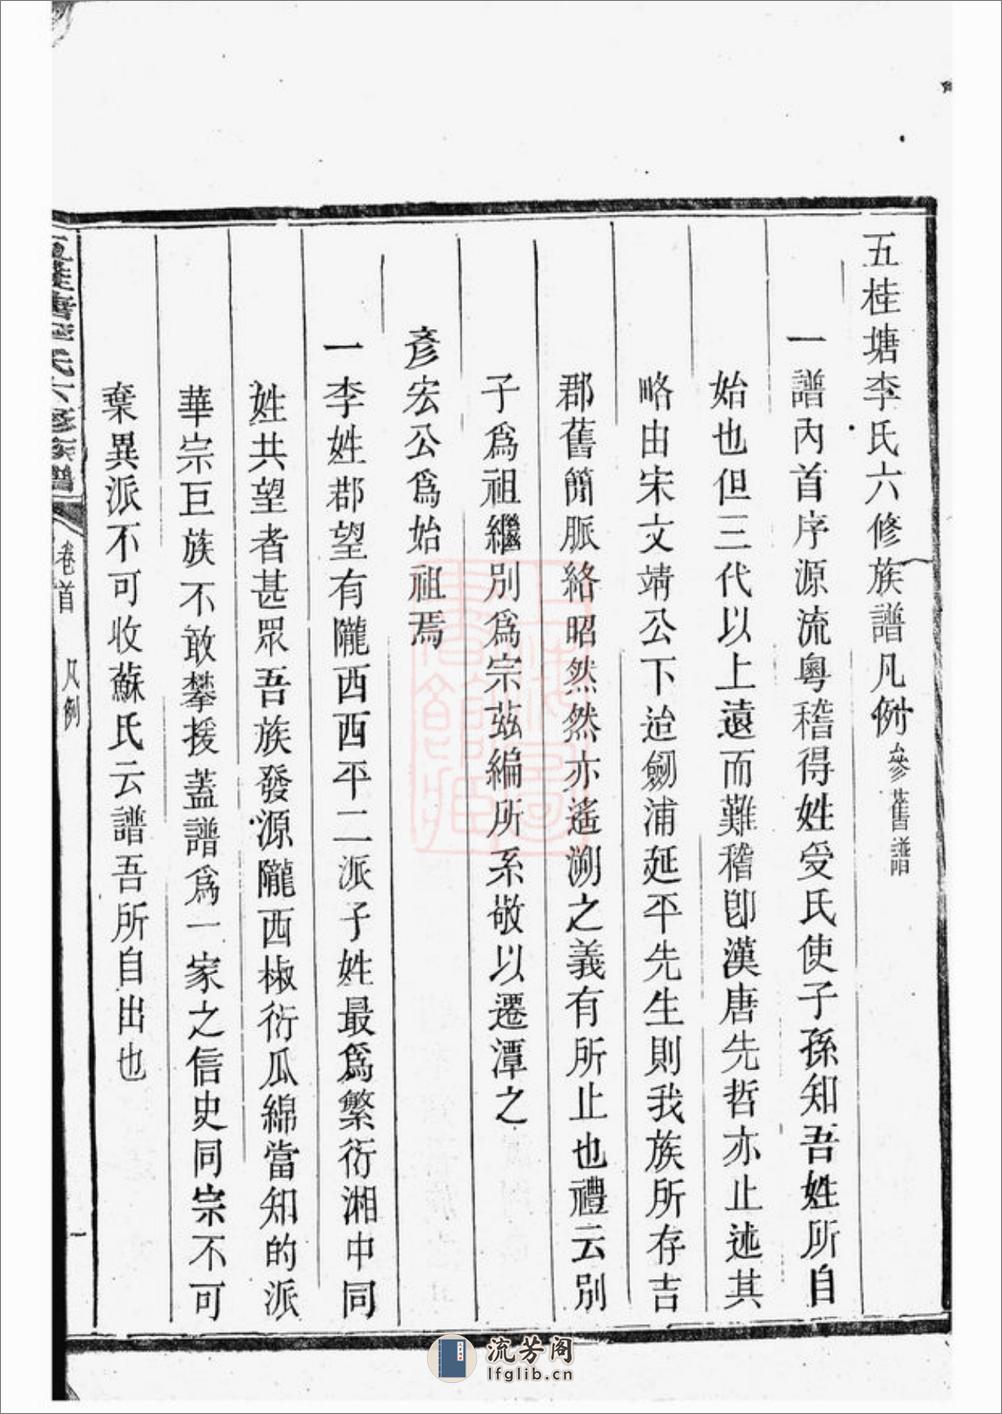 五桂塘李氏六修族譜凡例 參舊譜
一譜內首序源流粵稽得姓受氏使子孫知吾姓所自
始也但三代以上遠而難稽卽漢唐先哲亦止述其
略由宋文靖公下迨劒浦延平先生則我族所存吉
郡舊簡脈絡昭然然亦遙溯之義有所止也禮云別
子爲祖繼別爲宗茲編所系敬以遷潭之
彥宏公爲始祖焉
一李姓郡望有隴西西平二派子姓最爲繁衍湘中同
姓共望者甚眾吾族發源隴西椒衍瓜綿當知的派
華宗巨族不敢攀援蓋譜爲一家之信史同宗不可
棄異派不可收蘇氏云譜吾所自出也
五桂塘李氏六修族譜 卷首 凡例 一
流芳阁
lfglib.cn